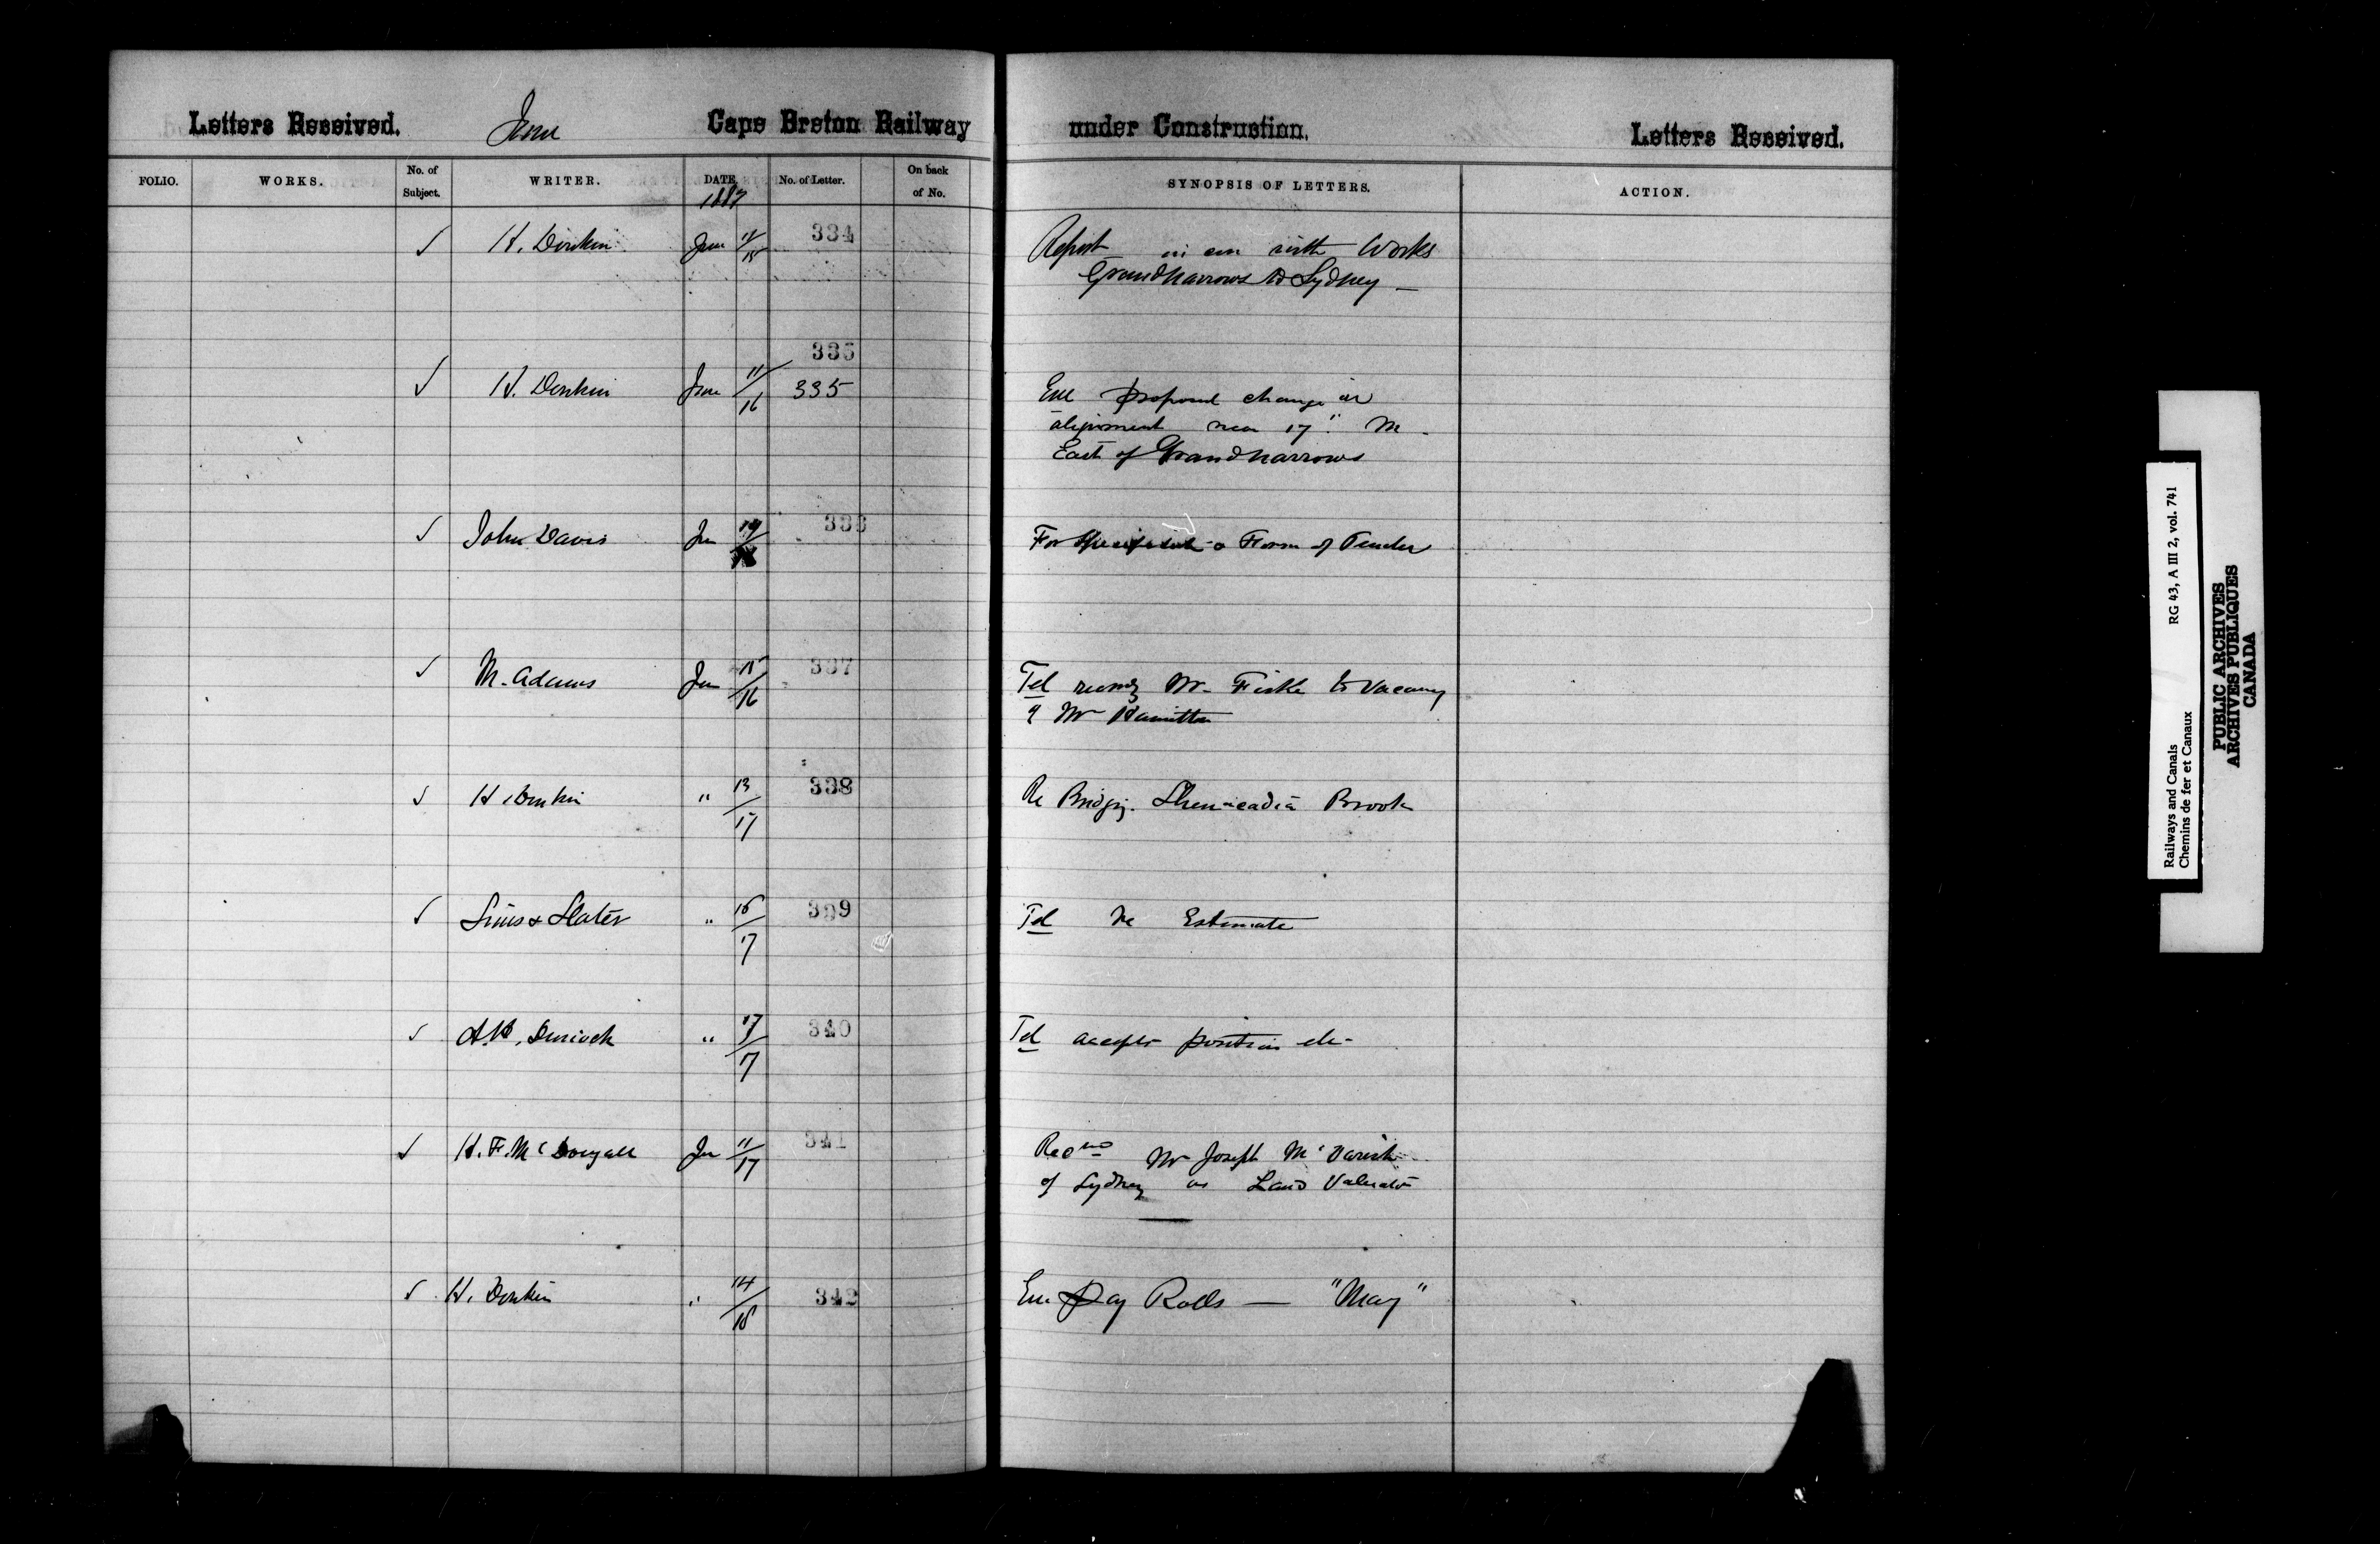 Letters Received. June Cape Breton Railway under Construction. Letters Received.
FOLIO. WORKS. No. of Subject. WRITER. DATE. No. of Letter. On back of No. SYNOPSIS OF LETTERS. ACTION.
1887
✓ H. Donkin June 11/15 334 Report in con with Works
Grand narrows to Sydney —
335
✓ H. Donkin June 11/16 335 Enc proposed change in
alignment near 17" M.
East of Grand narrows
✓ John Davis Jun 14/ 336 For Specification & Form of Tender
✓ M. Adams Jun 15/16 337 Tel Mr. Fiske to Vacancy
of Mr Hamilton
✓ H. Donkin " 13/17 338 Re Bridging Shenacadia Brook
✓ Sims & Slater " 16/17 339 Tel re Estimate
✓ " 17/17 340 Tel accepts position etc
✓ H. F. McDougall Jun 11/17 341 Mr Joseph McVarish
of Sydney as Land Valuator
✓ H. Donkin " 14/18 342 Enc Pay Rolls — "May"
Railways and Canals RG 43, A III 2, vol. 741
Chemins de fer et Canaux
PUBLIC ARCHIVES
ARCHIVES PUBLIQUES
CANADA